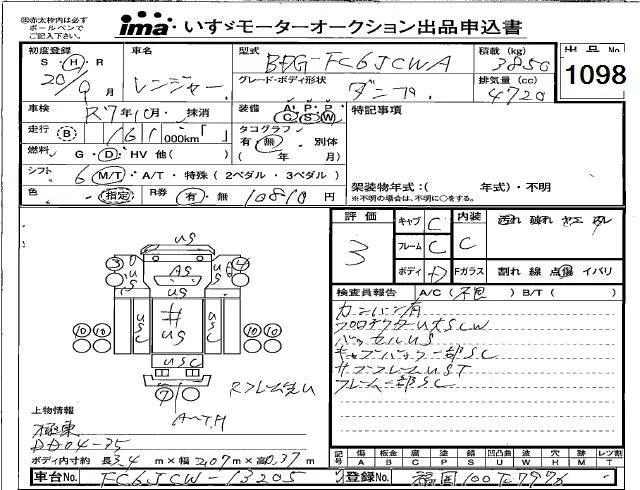 ㊟赤太枠内は必ずボールペンでご記入下さい。
ima いすゞモーターオークション出品申込書
初度登録 車名 型式 積載(kg) 出品No.
S・H・R 20/9月 レンジャー BDG-FC6JCWA 3850 1098
グレード・ボディ形状 ダンプ 排気量(cc) 4720
車検 R7年10月・抹消 装備 A・P・P C S W 特記事項
走行 B 161 000km「 」 タコグラフ 有・無・別体
燃料 G・D・HV 他( ) ( 年 月)
シフト 6 M/T・A/T・特殊(2ペダル・3ペダル) 架装物年式:( 年式)・不明
色 ・指定 R券 有・無 10810円 ※不明の場合は、不明に○をする。
評価 キャブ C 内装 汚れ 破れ ヤニ
3 フレーム C C
ボディ D Fガラス 割れ 線 点傷 イバリ
検査員報告 A/C(不良)B/T( )
カンバン有
プロテクター U大SCW
バックセルUS
キャブバック一部SC
サブフレームUST
フレーム一部SC
US
3 AS 4
US
USC # US USC
10 10 10 10
USC
7
Rフレーム
上物情報
極東
DD04-35
ボディ内寸約 長3.4m×幅2.07m×高0.37m
記号 傷 板金 腐 塗 錆 凹凸曲 波 穴 跡 レツ割
A B C P S U W H M T
車台No. FC6JCW-13205 登録No. 福岡100